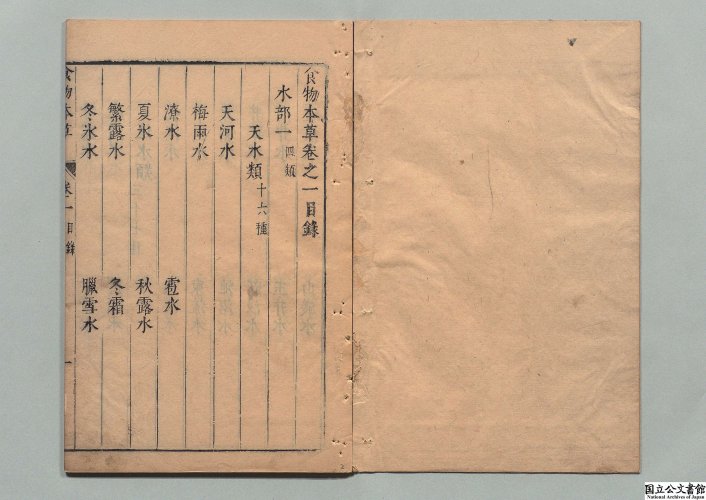 食物本草卷之一目錄
水部一 四類
天水類 十六種
天河水
梅雨水
潦水 雹水
夏氷 秋露水
繁露水 冬霜
冬氷水 臘雪水
食物本草 卷一目錄 一
国立公文書館
National Archives of Japan